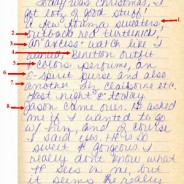 Today was Christmas, I
got lots of good stuff!
A few Esprit sweaters
1.
2.
outback red turtleneck,
3.
an watch like I
4.
wanted, Benetton outfit
5.
+ colors perfume, an
6.
e-spirit purse and also
7.
another
etc.
Last night & today
8.
Jason came over. He asked
me if I wanted to go
w/ him, and of course
I said yes. He is so
sweet & gorgeous I
really don't know what
he sees in me, but
it seems he really